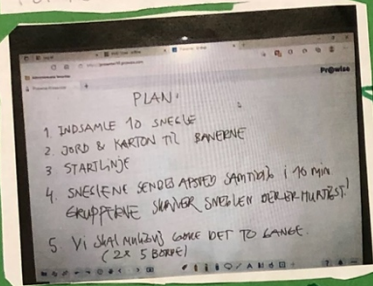 Pr@wise
PLAN:
1. INDSAMLE 10 SNEGLE
2. JORD & KARTON TIL BANERNE
3 STARTLINJE
4. SNEGLENE SENDES AFSTED SAMTIDIG I 10 min.
GRUPPERNE SKRIVER SNEGLEN DER ER HURTIGST!
5. Vi SKAL MULIGVIS GØRE DET TO GANGE.
(2x 5 BORDE)